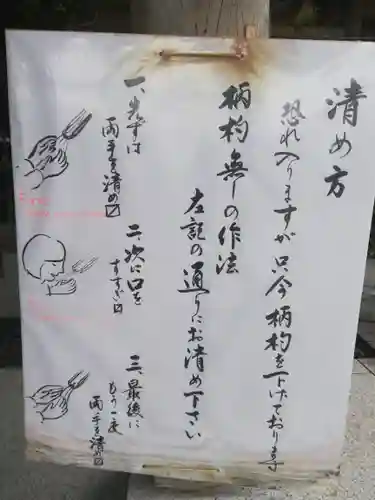 清め方
恐れ入りますが只今柄杓を下げております
柄杓無しの作法
左記の通りにお清め下さい
一、先ずは
両手を清め〼
二、次に口を
すすぎ〼
三、最後に
もう一度
両手を清め〼